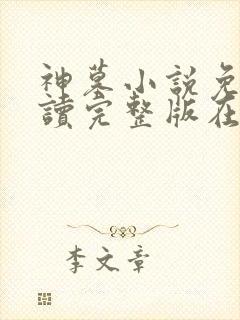 神墓小說免
讀完整版在
李文章